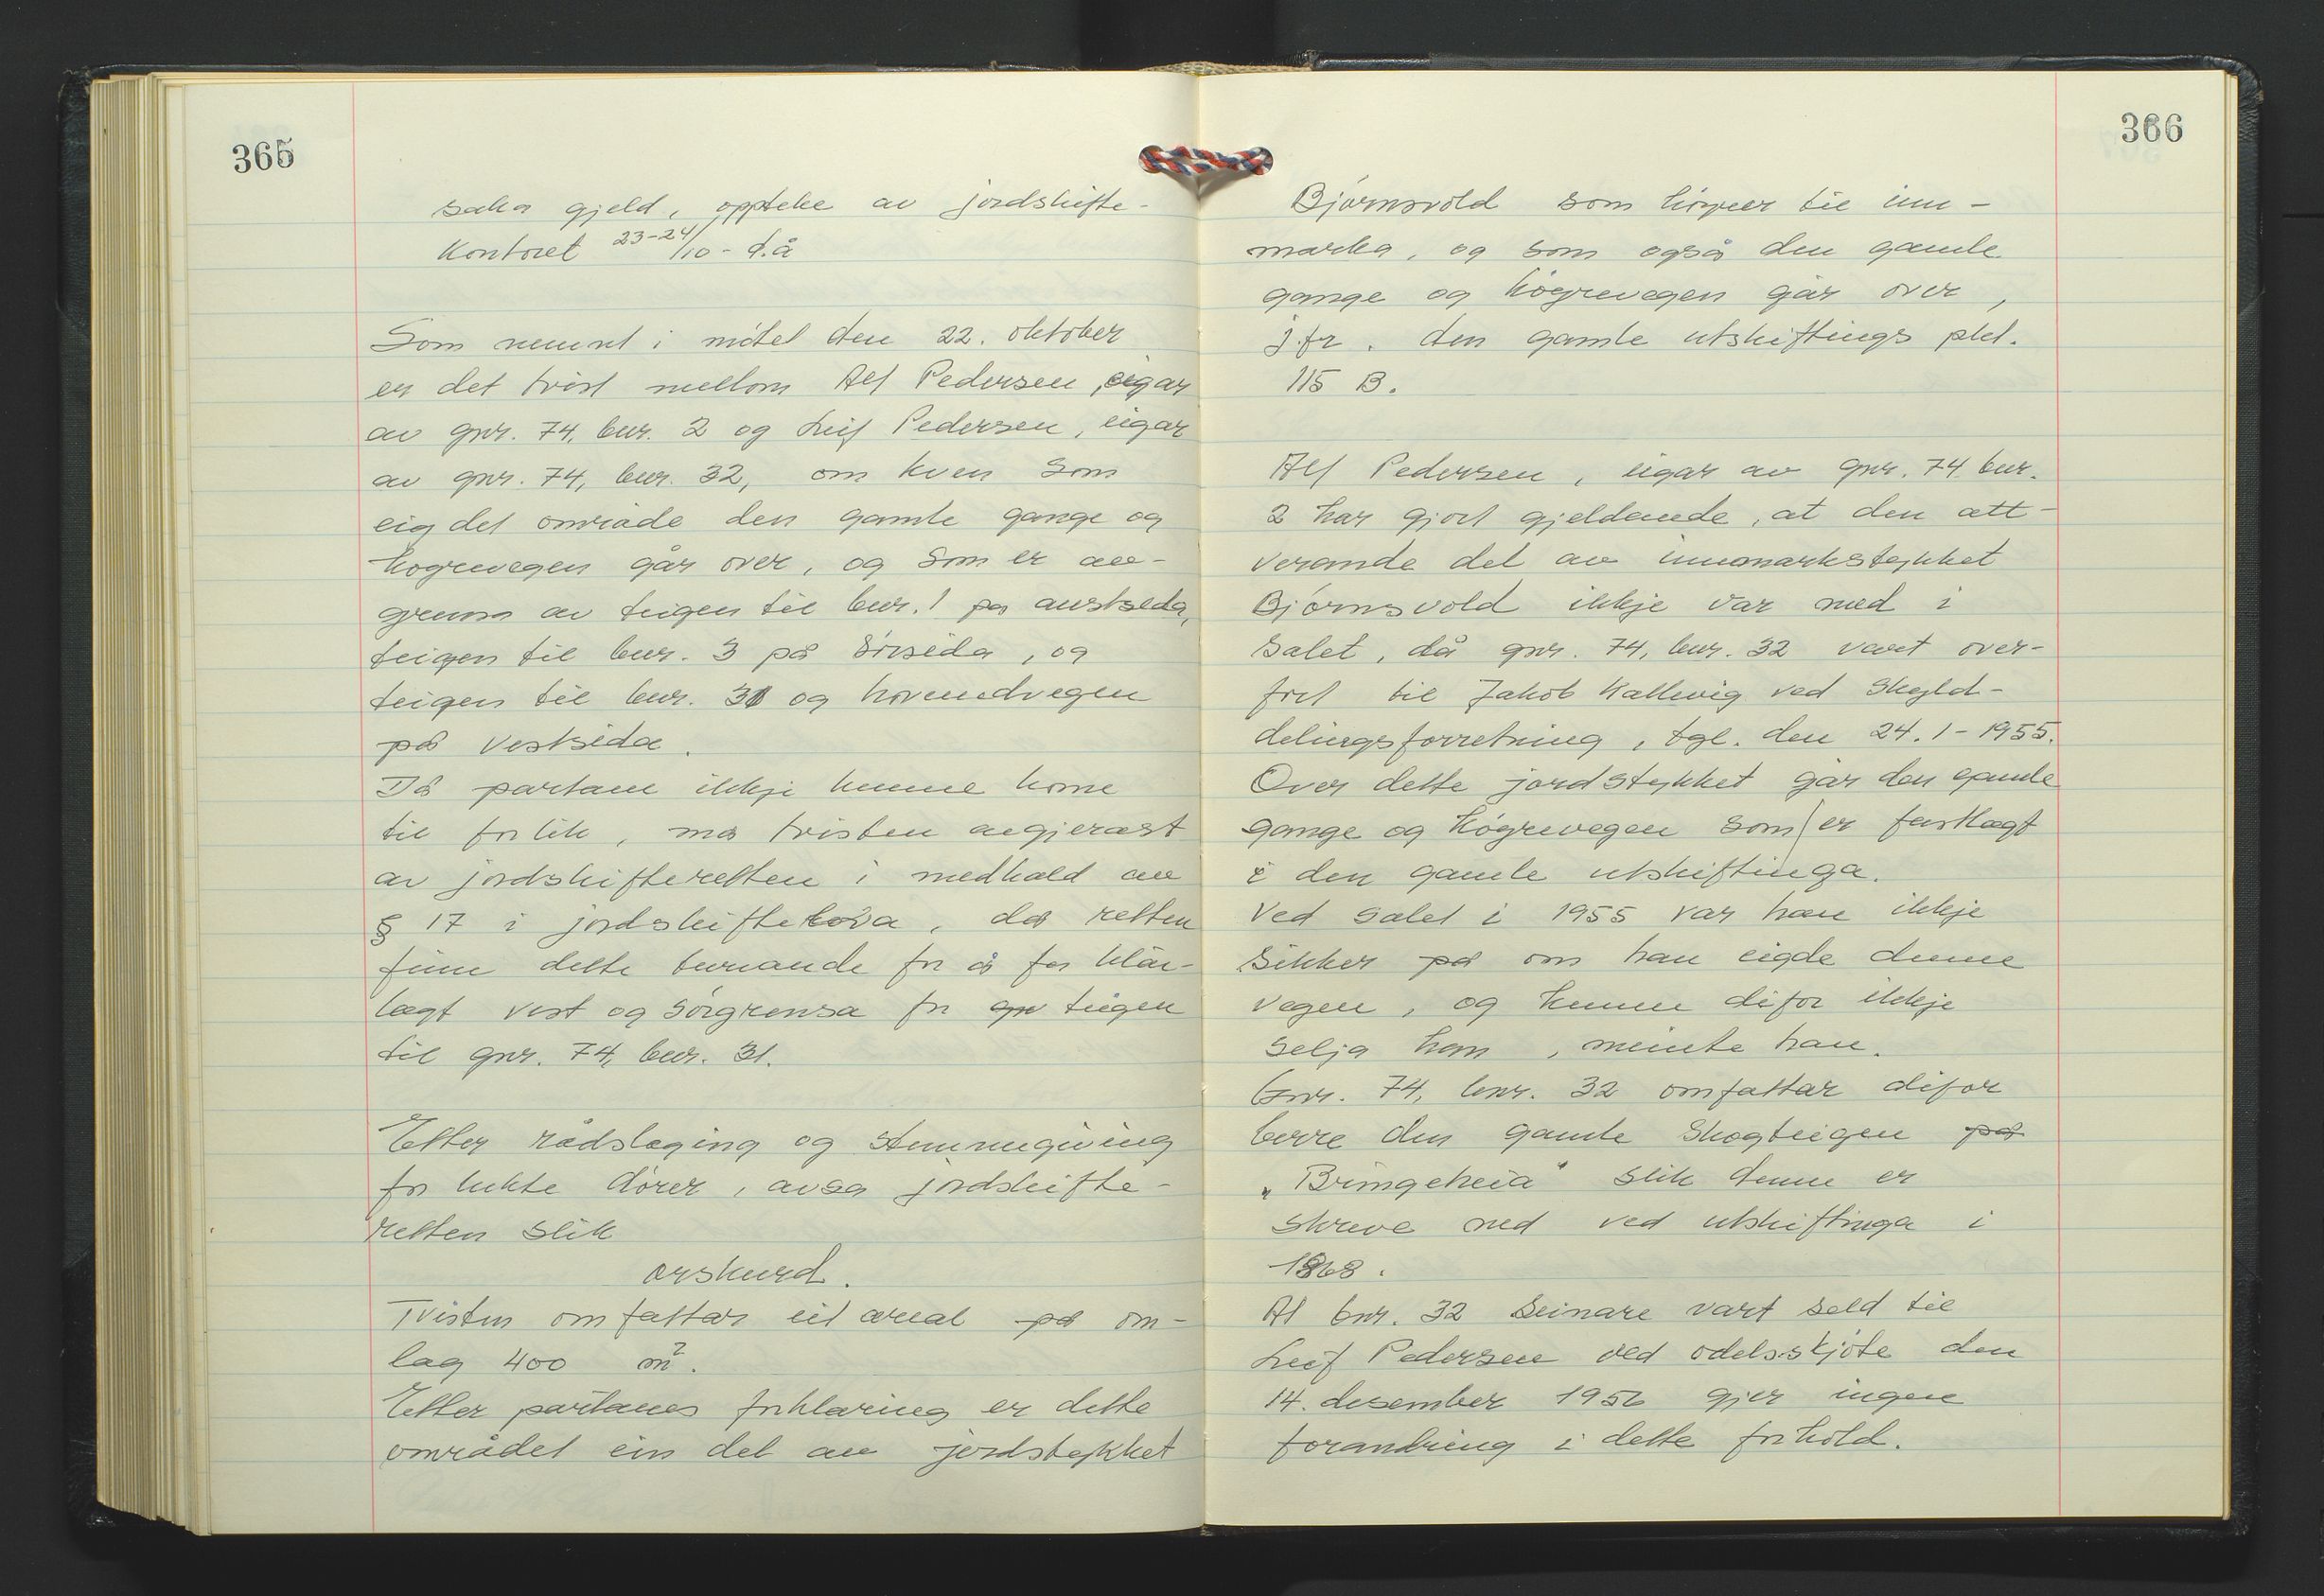 365
saka gjeld, oppteke av jordskifte-
kontoret 23-24/10 - d.å
Som nemnt i mötet den 22. oktober
er det tvist mellom Alf Pedersen, eigar
av gnr. 74, bnr. 2 og Leif Pedersen, eigar
av gnr. 74, bnr. 32, om kven som
eig det område den gamle gange og
högrevegen går over, og som er av-
grensa av teigen til bnr. 1 på austsida,
teigen til bnr. 3 på sörsida, og
teigen til bnr. 31 og hovudvegen
på vestsida.
Då partane ikkje kunne kome
til forlik, må tvisten avgjerast
av jordskifteretten i medhald av
§ 17 i jordskiftelova, då retten
finn dette turvande for å få klår-
lagt vest og sörgrensa for teigen
til gnr. 74, bnr. 31.
Etter rådslaging og stemmegiving
for lukte dörer, avsa jordskifte-
retten slik
orskurd.
Tvisten omfattar eit areal på om-
lag 400 m².
Etter partanes forklaring er dette
området ein del av jordstykket
366
Björnsvold som höyrer til inn-
marka, og som også den gamle
gange og högrevegen går over,
jfr. den gamle utskiftings pkt.
115 B.
Alf Pedersen, eigar av gnr. 74, bnr.
2 har gjort gjeldande, at den att-
verande del av innmarkstykket
Björnsvold ikkje var med i
salet, då gnr. 74, bnr. 32 vart over-
fört til Jakob Kallevig ved skyld-
delingsforretning, tgl. den 24.1-1955.
Over dette jordstykket går den gamle
gange og högrevegen som er fastlagt
i den gamle utskiftinga.
Ved salet i 1955 var han ikkje
sikker på om han eigde denne
vegen, og kunne difor ikkje
selja han, meinte han.
Gnr. 74, bnr. 32 omfattar difor
berre den gamle skogteigen på
"Bringeheia" slik denne er
skreve ned ved utskiftinga i
1868.
At bnr. 32 seinare vart seld til
Leif Pedersen ved odelsskjöte den
14. desember 1956 gjer ingen
forandring i dette forhold.